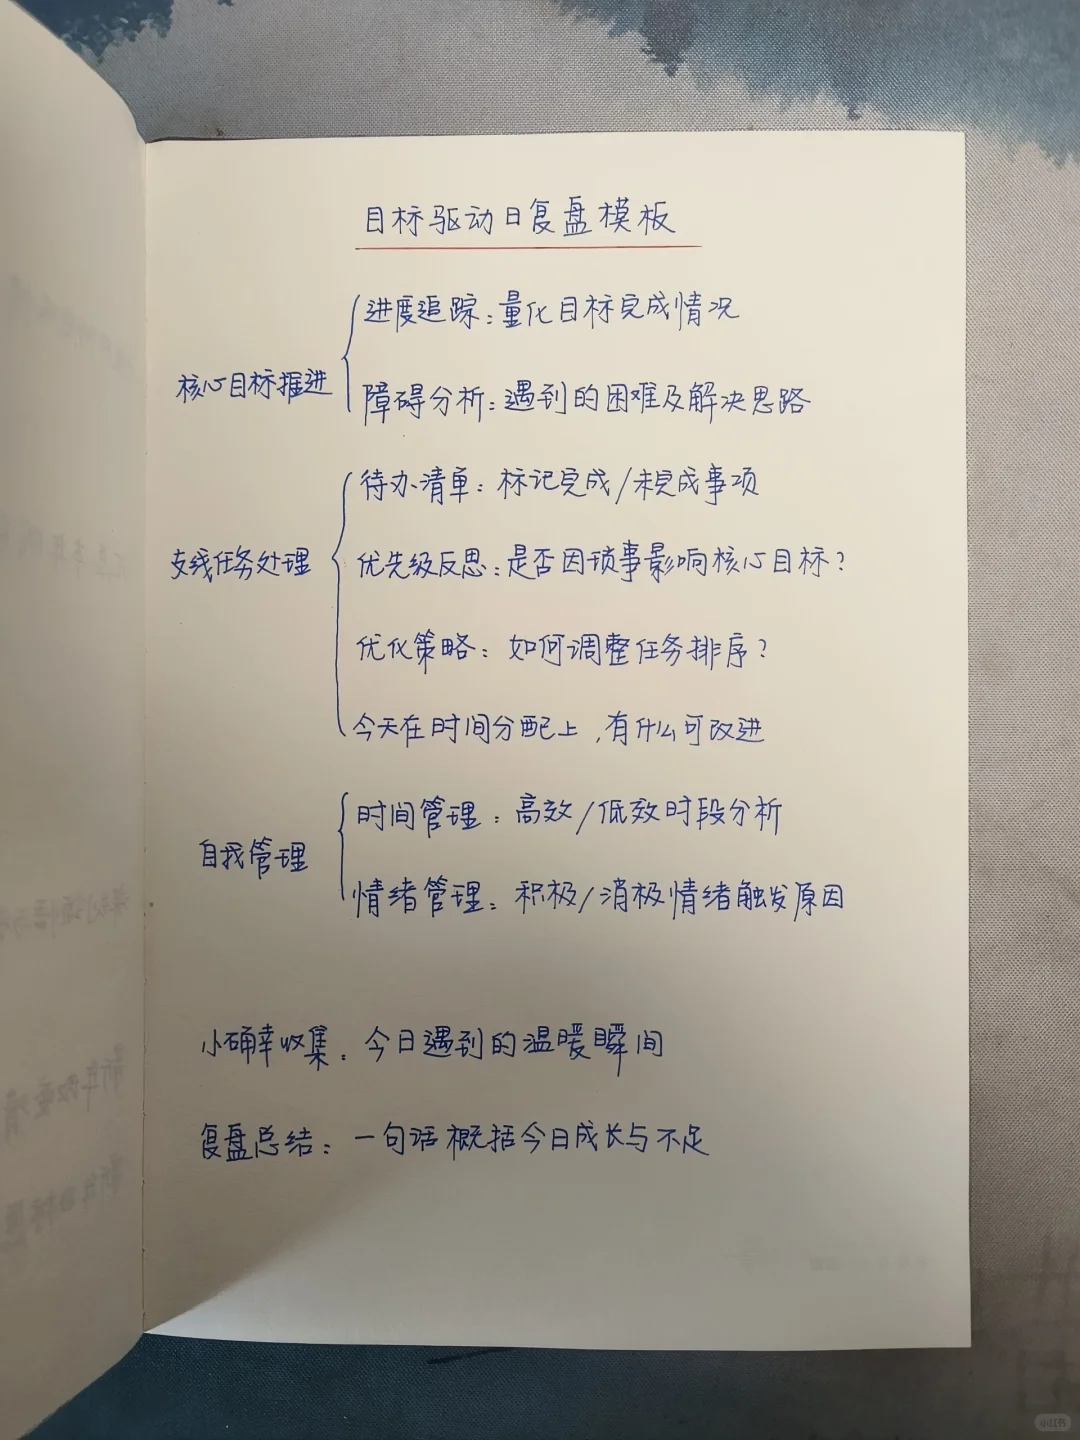 目标驱动日复盘模板
核心目标推进
进度追踪：量化目标完成情况
障碍分析：遇到的困难及解决思路
支线任务处理
待办清单：标记完成/未完成事项
优先级反思：是否因琐事影响核心目标？
优化策略：如何调整任务排序？
今天在时间分配上，有什么可改进
自我管理
时间管理：高效/低效时段分析
情绪管理：积极/消极情绪触发原因
小确幸收集：今日遇到的温暖瞬间
复盘总结：一句话概括今日成长与不足
小红书